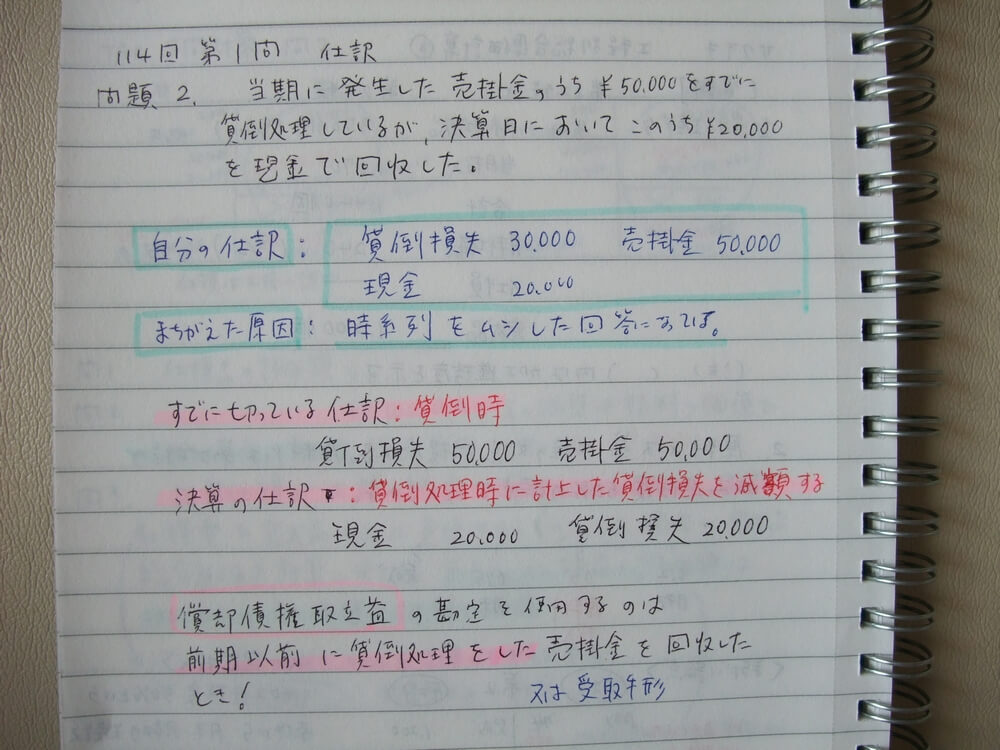 114回 第1問 仕訳
問題2. 当期に発生した売掛金のうち¥50,000をすでに
貸倒処理しているが、決算日においてこのうち¥20,000
を現金で回収した。
自分の仕訳: 貸倒損失 30,000 売掛金 50,000
現金 20,000
まちがえた原因: 時系列をムシした回答になってる。
すでに切っている仕訳:貸倒時
貸倒損失 50,000 売掛金 50,000
決算の仕訳:貸倒処理時に計上した貸倒損失を減額する
現金 20,000 貸倒損失 20,000
償却債権取立益の勘定を使用するのは
前期以前に貸倒処理をした売掛金を回収した
とき! 又は受取手形